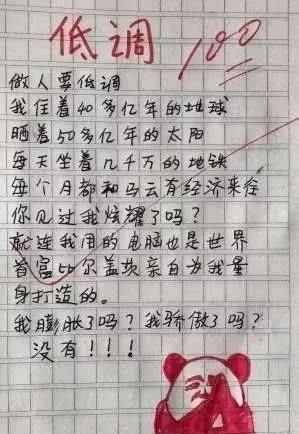 低调
100
做人要低调
我住着40多亿年的地球
晒着50多亿年的太阳
每天坐着几千万的地铁
每个月都和马云有经济来往
你见过我炫耀了吗?
就连我用的电脑也是世界
首富比尔盖茨亲自为我量
身打造的。
我膨胀了吗?我骄傲了吗?
没有!!!